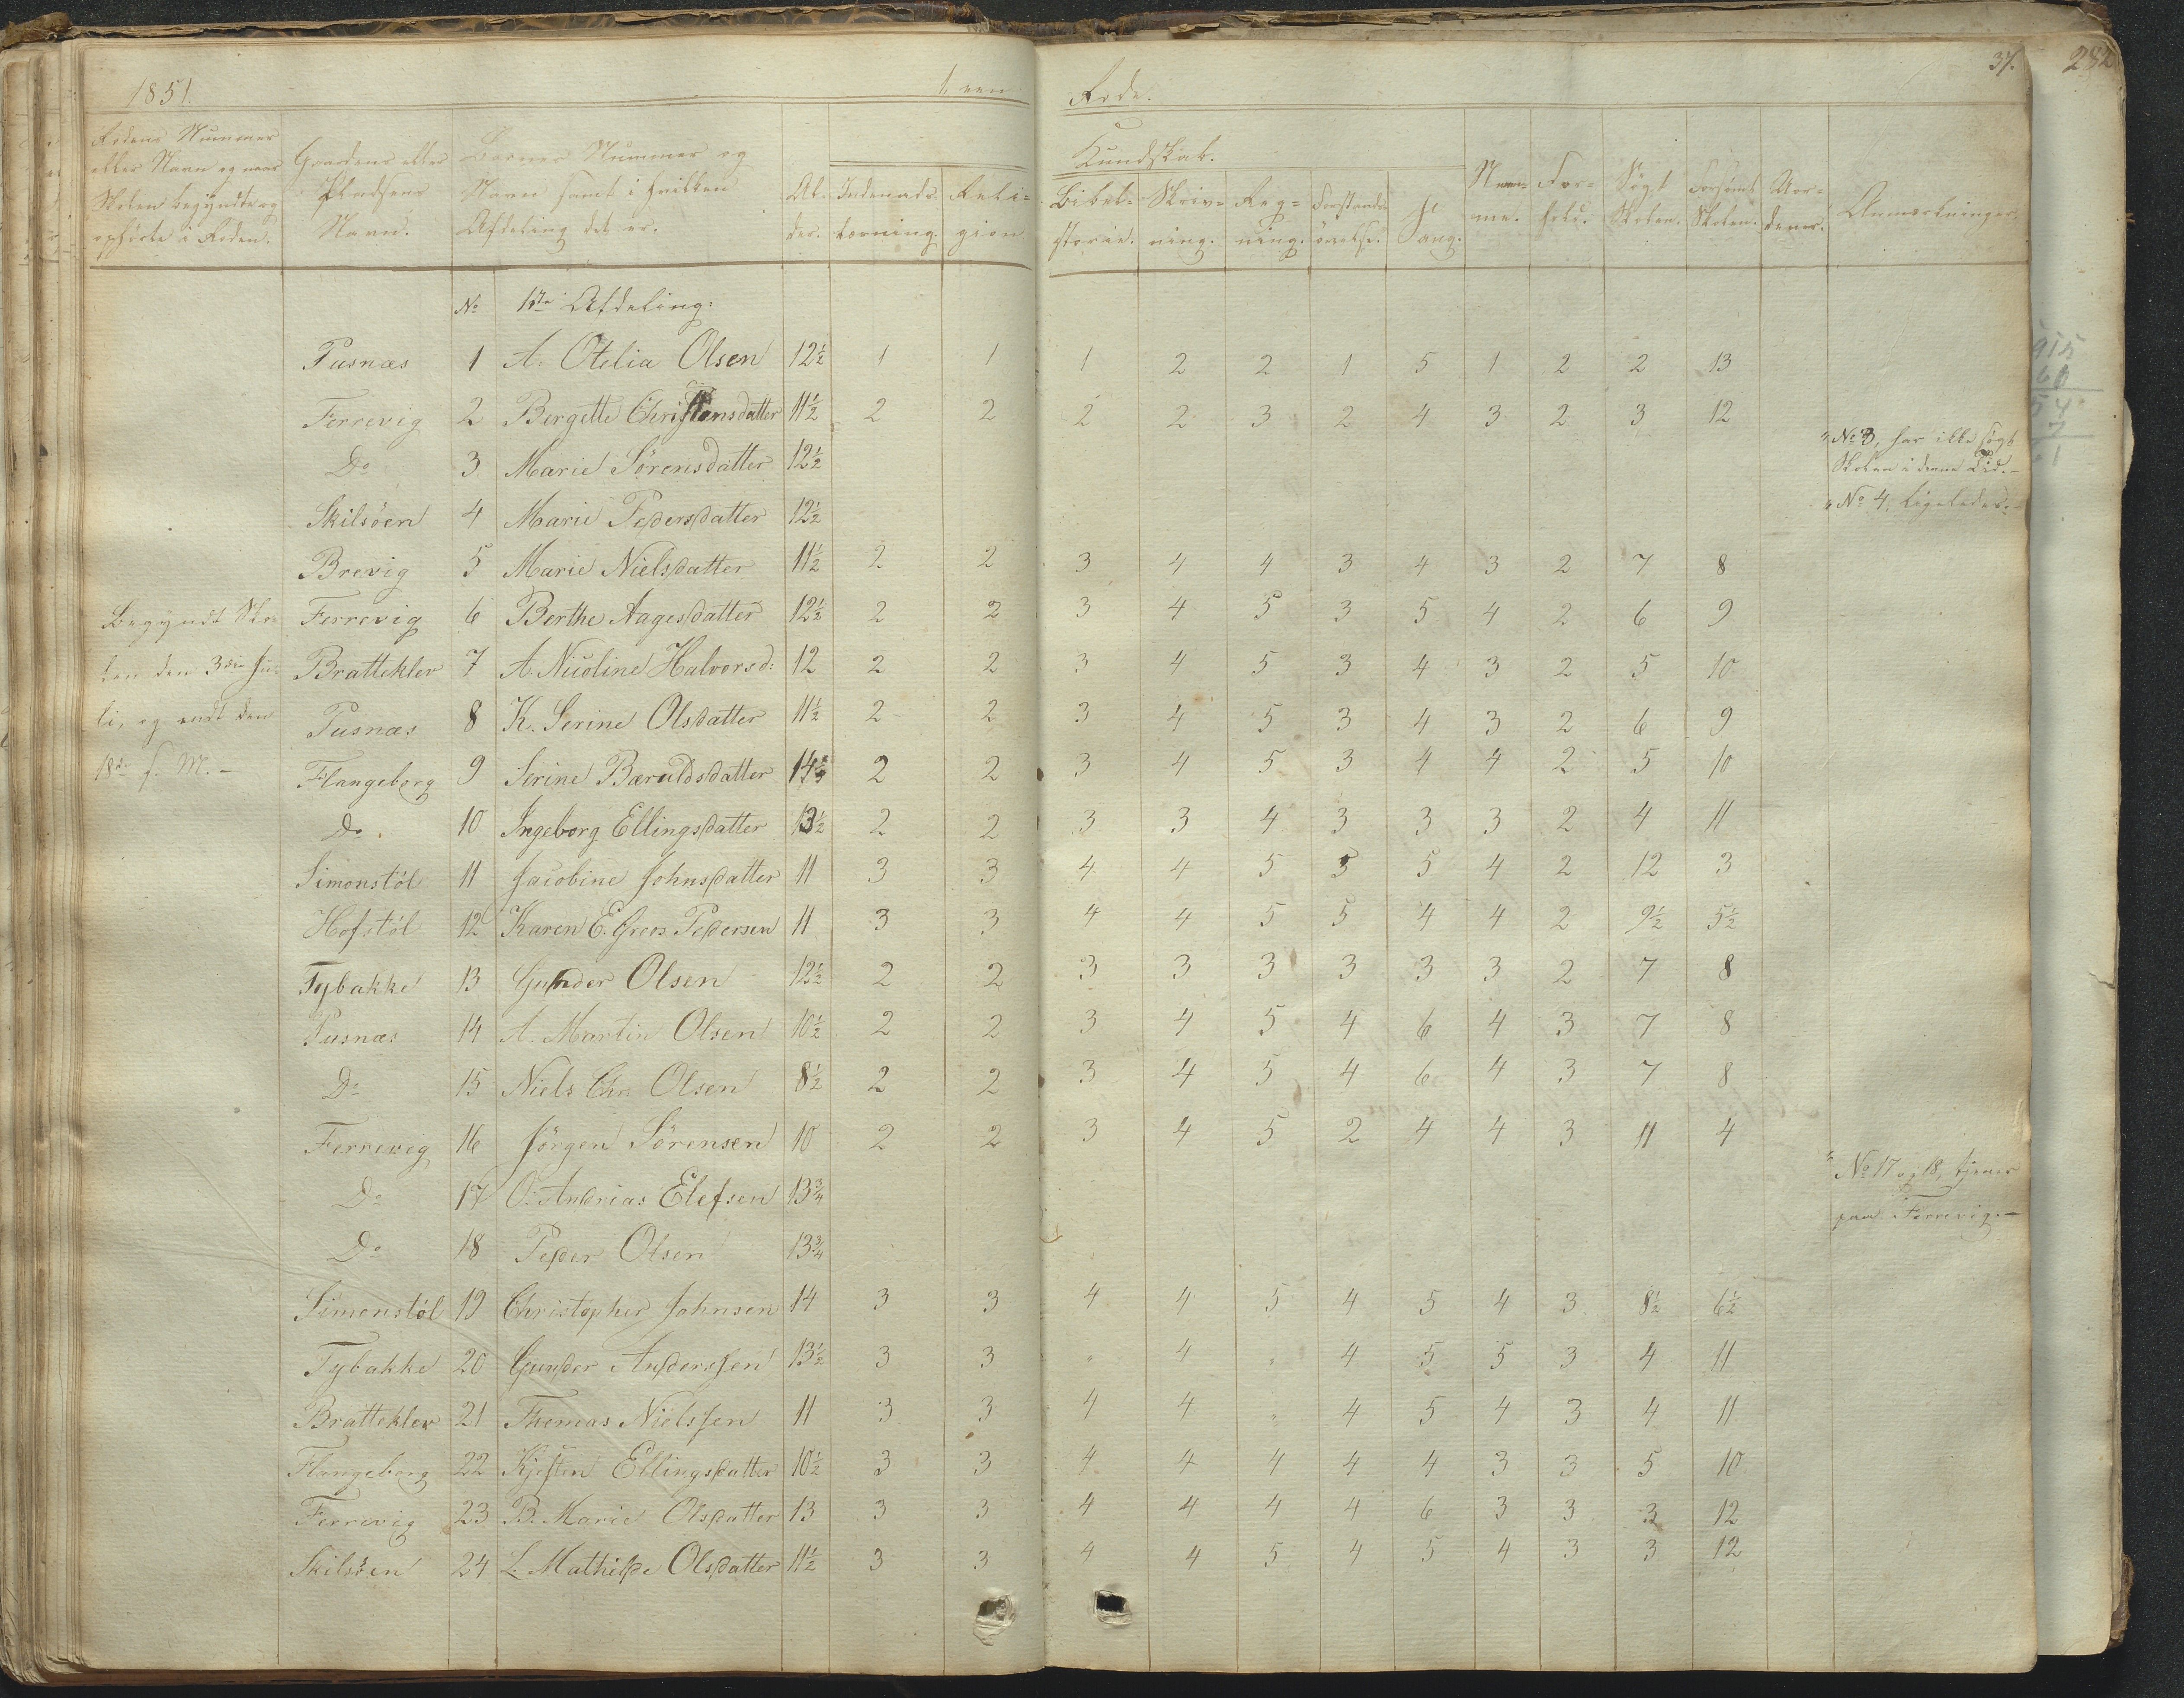 1851. 1. een Rode. 37. 232
Rodens Nummer eller Navn og naar Skolen begyndte og ophörte i Roden. Gaardens eller Pladsens Navn. Börnes Nummer og Navn samt i hvilken Afdeling det er. Al- der. Indenads- læsning. Reli- gion.
Kundskab.
Bibel- storie. Skriv- ning. Reg- ning. Forstands- övelse. Sang. Nem- me. For- hold. Sögt Skolen. Forsömt Skolen. Vor- dener. Anmærkninger.
No 1ste Afdeling:
Pusnæs 1 A. Otelia Olsen 12½ 1 1 1 2 2 1 5 1 2 2 13
Ferrevig 2 Bergette Christensdatter 11½ 2 2 2 2 3 2 4 3 2 3 12
Do 3 Marie Sörensdatter 12½ "No 3, har ikke sögt
Skolen i denne Tid.-
Skilsöen 4 Marie Pedersdatter 12½ "No 4, ligeledes.-
Brevig 5 Marie Nielsdatter 11½ 2 2 3 4 4 3 4 3 2 7 8
Begyndt Sko- Ferrevig 6 Berthe Aagesdatter 12½ 2 2 3 4 5 3 5 4 2 6 9
len den 3die Ju- Bratteklev 7 A. Nicoline Halvorsd: 12 2 2 3 4 5 3 4 3 2 5 10
li, og endt den Pusnæs 8 K. Serine Olsdatter 11½ 2 2 3 4 5 3 4 3 2 6 9
18de s. M.- Flangeborg 9 Serine Baruldsdatter 14 2 2 3 4 5 3 4 4 2 5 10
Do 10 Ingeborg Ellingsdatter 13½ 2 2 3 3 4 3 3 3 2 4 11
Simonstöl 11 Jacobine Johnsdatter 11 3 3 4 4 5 5 5 4 2 12 3
Hofstöl 12 Karen E. Groos Pedersen 11 3 3 4 4 5 5 4 4 2 9½ 5½
Tybakke 13 Gunder Olsen 12½ 2 2 3 3 3 3 3 3 2 7 8
Pusnæs 14 A. Martin Olsen 10½ 2 2 3 4 5 4 6 4 3 7 8
Do 15 Niels Chr. Olsen 8½ 2 2 3 4 5 4 6 4 3 7 8
Ferrevig 16 Jörgen Sörensen 10 2 2 3 4 5 2 4 4 3 11 4
Do 17 O. Andrias Elefsen 13¾ "No 17 og 18, tjener
paa Ferrevig.-
Do 18 Peder Olsen 13¾
Simonstöl 19 Christopher Johnsen 14 3 3 4 4 5 4 5 4 3 8½ 6½
Tybakke 20 Gunder Anderssen 13½ 3 3 " 4 " 4 5 5 3 4 11
Bratteklev 21 Thomas Nielssen 11 3 3 4 4 " 4 5 4 3 4 11
Flangeborg 22 Kjesten Ellingsdatter 10½ 3 3 4 4 4 4 4 3 3 5 10
Ferrevig 23 B. Marie Olsdatter 13 3 3 4 4 4 4 6 3 3 3 12
Skilsöen 24 L. Mathilde Olsdatter 11½ 3 3 4 4 5 4 5 4 3 3 12
915
60